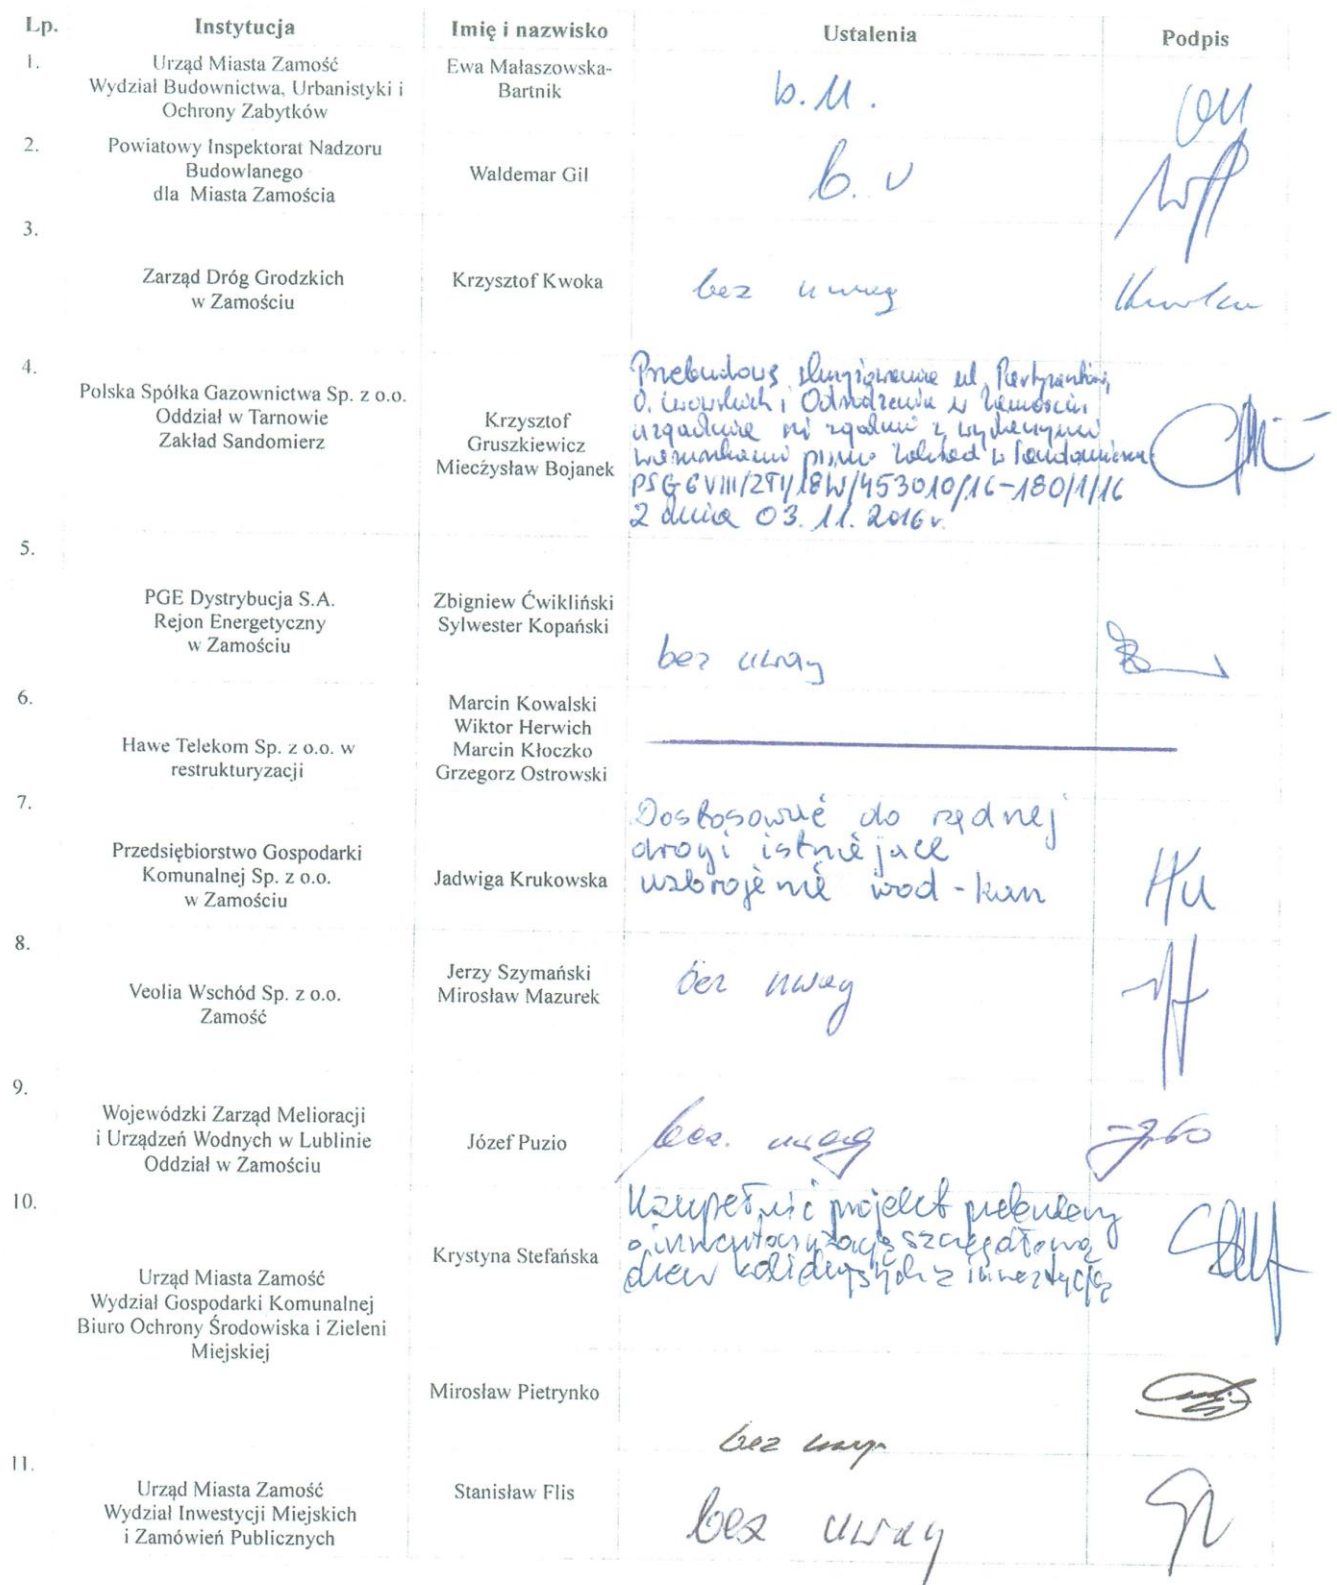 Lp. Instytucja Imię i nazwisko Ustalenia Podpis
1. Urząd Miasta Zamość
Wydział Budownictwa, Urbanistyki i
Ochrony Zabytków
Ewa Małaszowska-
Bartnik
b.u.
2. Powiatowy Inspektorat Nadzoru
Budowlanego
dla Miasta Zamościa
Waldemar Gil
b. u
3.
Zarząd Dróg Grodzkich
w Zamościu
Krzysztof Kwoka
bez uwag
4.
Polska Spółka Gazownictwa Sp. z o.o.
Oddział w Tarnowie
Zakład Sandomierz
Krzysztof
Gruszkiewicz
Mieczysław Bojanek
Przebudowę skrzyżowania ul. Partyzantów,
O. Lwowskich i Odrodzenia w Zamościu
uzgadnia się zgodnie z wydanymi
warunkami pismo Zakład w Sandomierzu
2 dnia 03.11.2016 r.
5.
PGE Dystrybucja S.A.
Rejon Energetyczny
w Zamościu
Zbigniew Ćwikliński
Sylwester Kopański
bez uwag
6.
Hawe Telekom Sp. z o.o. w
restrukturyzacji
Marcin Kowalski
Wiktor Herwich
Marcin Kłoczko
Grzegorz Ostrowski
7.
Przedsiębiorstwo Gospodarki
Komunalnej Sp. z o.o.
w Zamościu
Jadwiga Krukowska
Dostosować do rzędnej
drogi istniejące
uzbrojenie wod-kan
8.
Veolia Wschód Sp. z o.o.
Zamość
Jerzy Szymański
Mirosław Mazurek
bez uwag
9.
Wojewódzki Zarząd Melioracji
i Urządzeń Wodnych w Lublinie
Oddział w Zamościu
Józef Puzio
bez. uwag
10.
Urząd Miasta Zamość
Wydział Gospodarki Komunalnej
Biuro Ochrony Środowiska i Zieleni
Miejskiej
Krystyna Stefańska
Uzupełnić projekt przebudowy
o inwentaryzację szczegółową
drzew kolidujących z inwestycją
Mirosław Pietrynko
bez uwag
11.
Urząd Miasta Zamość
Wydział Inwestycji Miejskich
i Zamówień Publicznych
Stanisław Flis
bez uwag